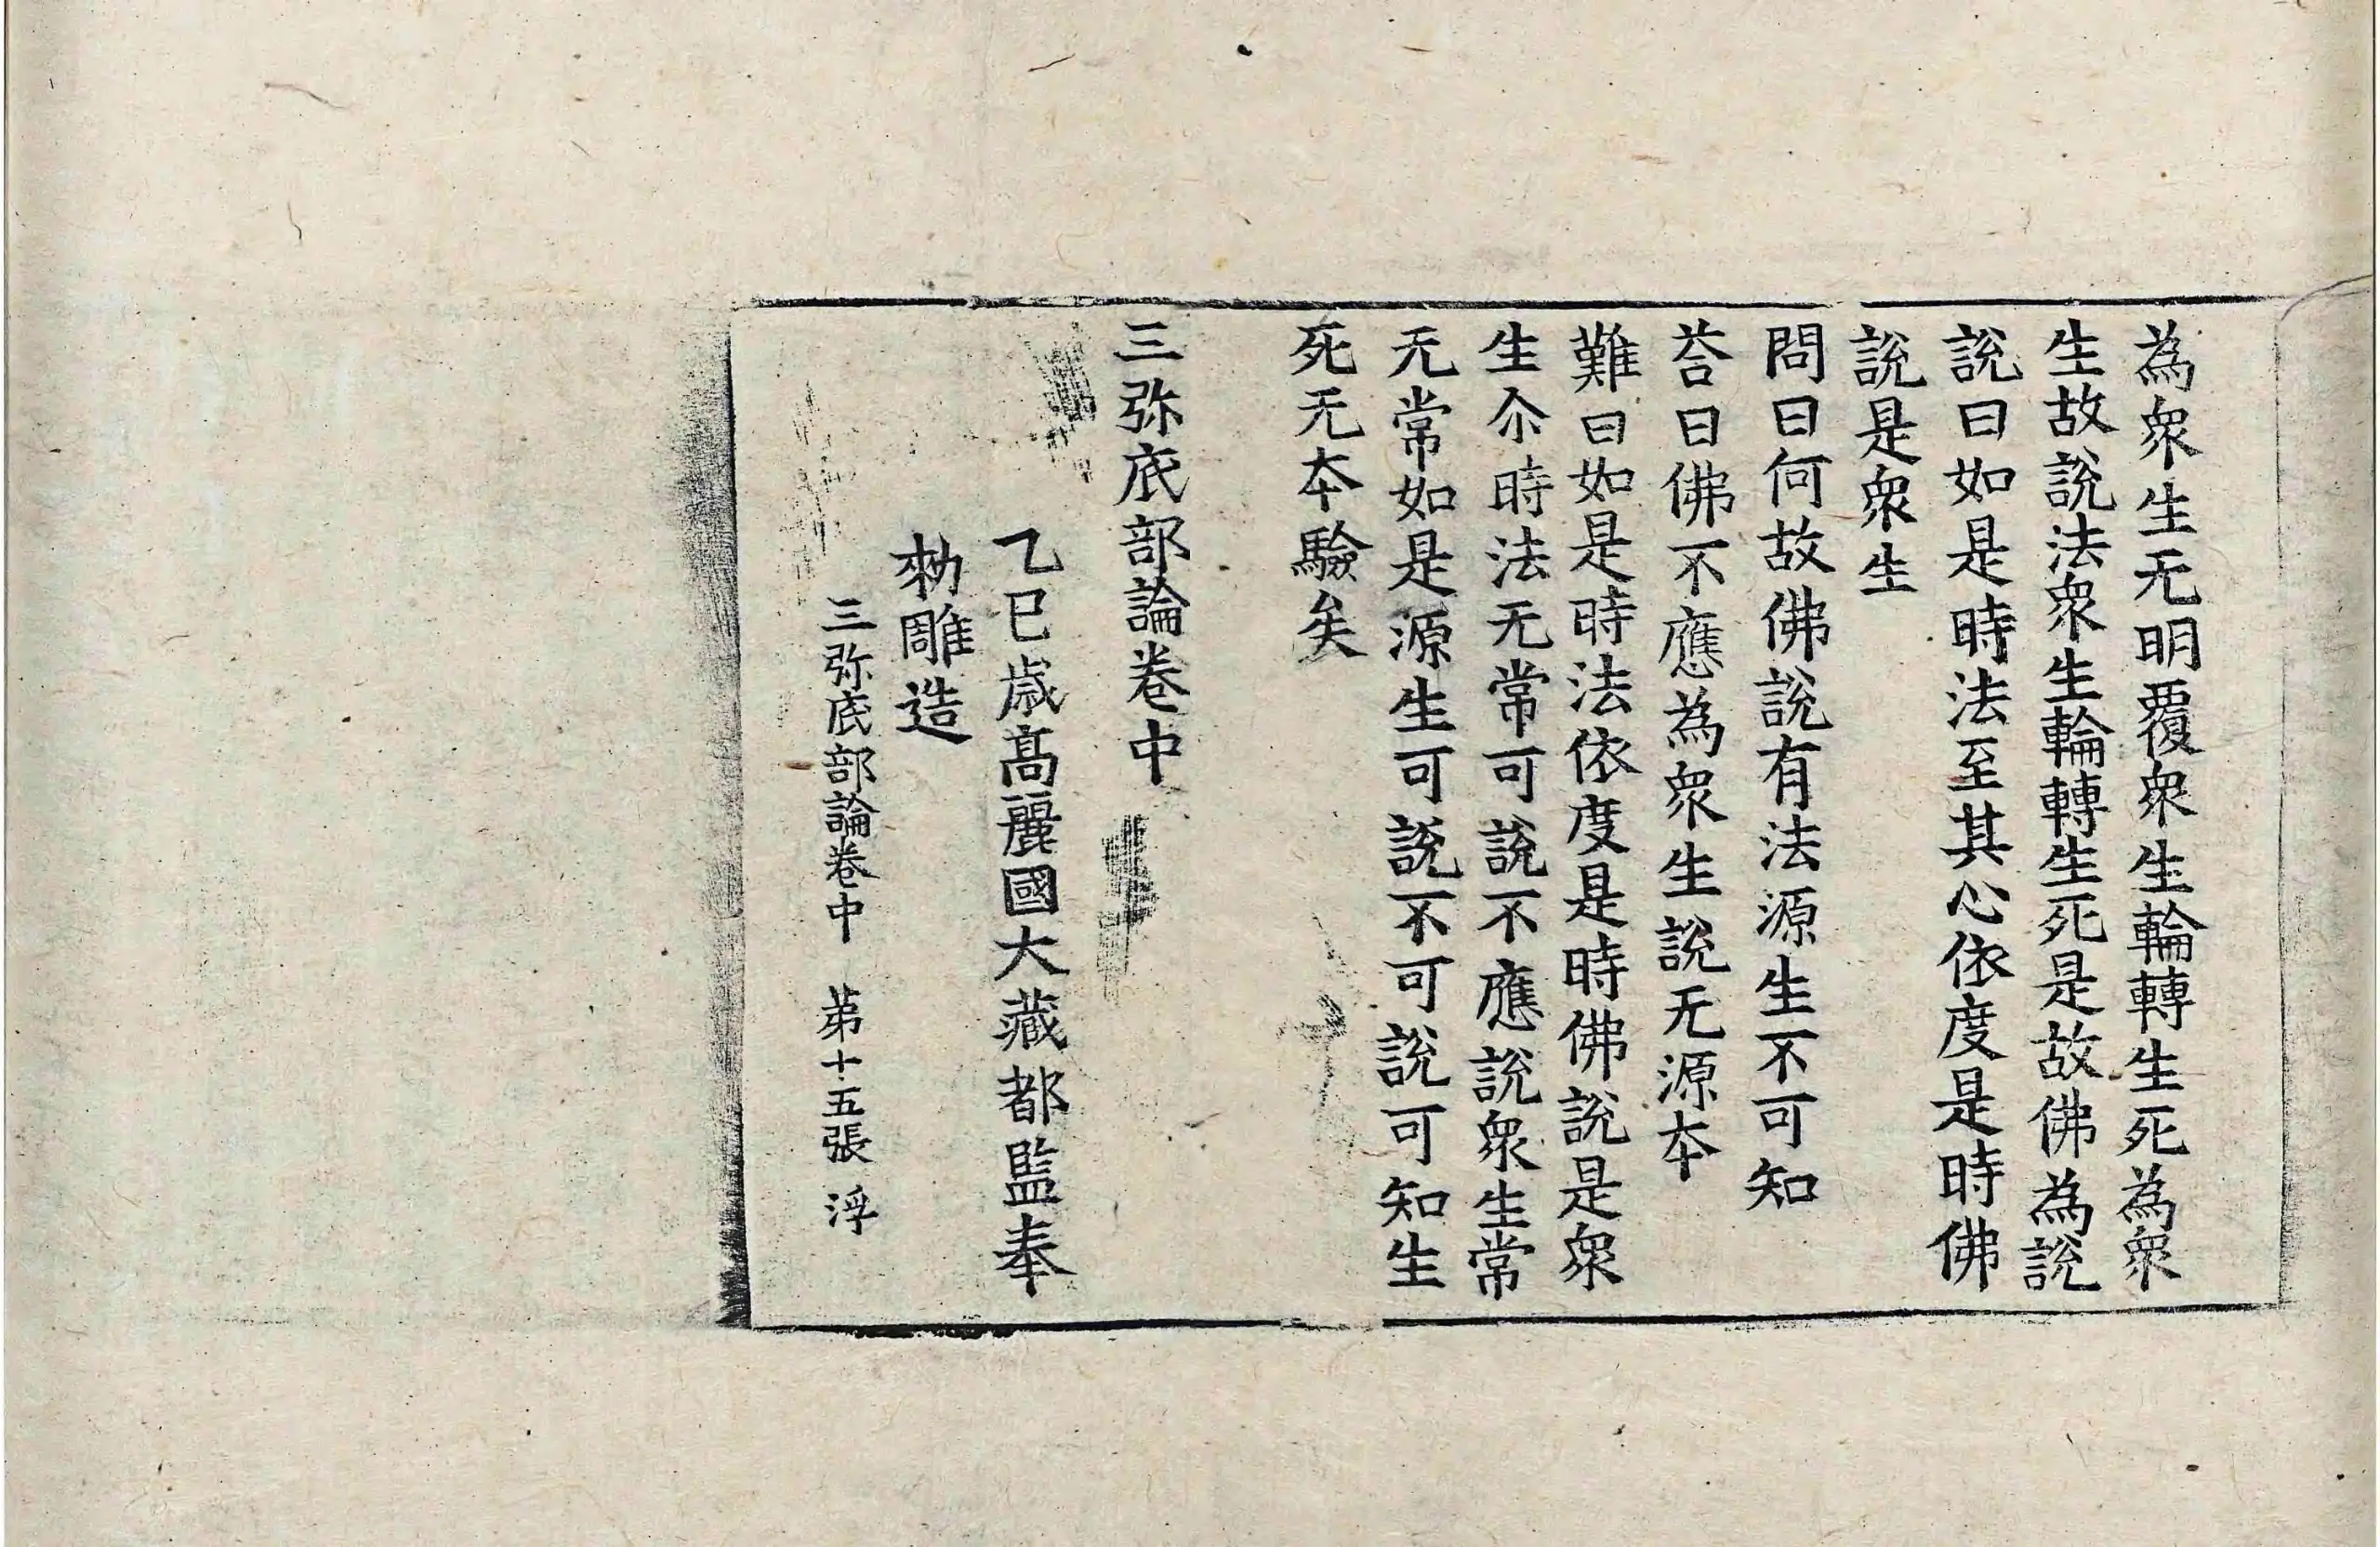 為衆生无明覆衆生輪轉生死為衆
生故說法衆生輪轉生死是故佛為說
說曰如是時法至其心依度是時佛
說是衆生
問曰何故佛說有法源生不可知
荅曰佛不應為衆生說无源本
難曰如是時法依度是時佛說是衆
生尒時法无常可說不應說衆生常
无常如是源生可說不可說可知生
死无本驗矣
三弥底部論卷中
乙巳歲高麗國大藏都監奉
勑雕造
三弥底部論卷中 苐十五張 浮